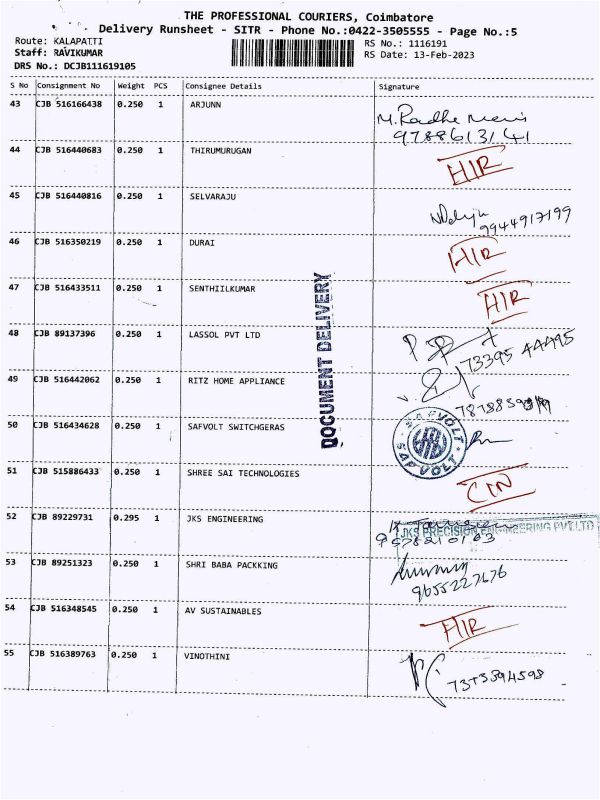 THE PROFESSIONAL COURIERS, Coimbatore
Delivery Runsheet - SITR - Phone No.:0422-3505555 - Page No.:5
Route: KALAPATTI RS No.: 1116191
Staff: RAVIKUMAR RS Date: 13-Feb-2023
DRS No.: DCJB111619105
S No Consignment No Weight PCS Consignee Details Signature
43 CJB 516166438 0.250 1 ARJUNN
M. Radhe
9788613141
44 CJB 516440683 0.250 1 THIRUMURUGAN HIR
45 CJB 516440816 0.250 1 SELVARAJU
9944917199
46 CJB 516350219 0.250 1 DURAI HIR
47 CJB 516433511 0.250 1 SENTHIILKUMAR HIR
DOCUMENT DELIVERY
48 CJB 89137396 0.250 1 LASSOL PVT LTD
73395 44495
49 CJB 516442062 0.250 1 RITZ HOME APPLIANCE
50 CJB 516434628 0.250 1 SAFVOLT SWITCHGERAS
SAFVOLT SAFVOLT
51 CJB 515886433 0.250 1 SHREE SAI TECHNOLOGIES CIN
52 CJB 89229731 0.295 1 JKS ENGINEERING
JKS PRECISION ENGINEERING PVT LTD
53 CJB 89251323 0.250 1 SHRI BABA PACKKING
9655227676
54 CJB 516348545 0.250 1 AV SUSTAINABLES HIR
55 CJB 516389763 0.250 1 VINOTHINI
7373394598